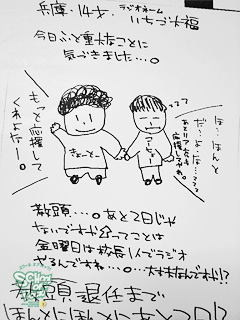 兵庫・14才・ラジオネーム
いちご大福
今日ふと重大なことに
気づきました…。
もっと応援して
くれよなー。
ほ…ほんと
だ…よ…な…ててて
あとリア友も
応援してみれ。
きょーとー
こーちょー
教頭…。あと2日じゃ
ないですか!!ってことは
金曜日は校長1人でラジオ
やるんですね…。…大丈夫なんですか!?
教頭退任まで
ほんとにほんとにあと2日!?